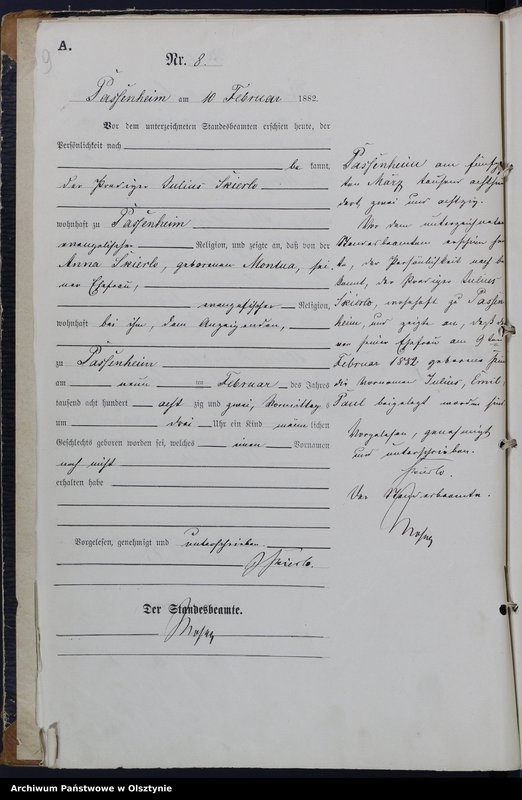 A.
9
Nr. 8.
Passenheim am 10 Februar 1882.
Vor dem unterzeichneten Standesbeamten erschien heute, der
Persönlichkeit nach
be kannt,
der Prediger Julius Skierlo
wohnhaft zu Passenheim
evangelischer Religion, und zeigte an, daß von der
Anna Skierlo, geborenen Montua, sei-
ner Ehefrau,
evangelischer Religion,
wohnhaft bei ihm, dem Anzeigenden,
zu Passenheim
am neun ten Februar des Jahres
tausend acht hundert acht zig und zwei, Vormittag s
um drei Uhr ein Kind männ lichen
Geschlechts geboren worden sei, welches einen Vornamen
noch nicht
erhalten habe
Vorgelesen, genehmigt und unterschrieben.
Skierlo.
Der Standesbeamte.
Passenheim am fünfzehn
ten März tausend achthun
dert zwei und achtzig.
Vor dem unterzeichneten
Standesbeamten erschien heu
te, der Persönlichkeit nach be
kannt, der Prediger Julius
Skierlo, wohnhaft zu Passen
heim, und zeigte an, daß dem
von seiner Ehefrau am 9ten
Februar 1882 geborene
die Vornamen Julius, Emil,
Paul beigelegt worden sind
Vorgelesen, genehmigt
und unterschrieben.
Skierlo.
Der Standesbeamte.
Archiwum Państwowe w Olsztynie